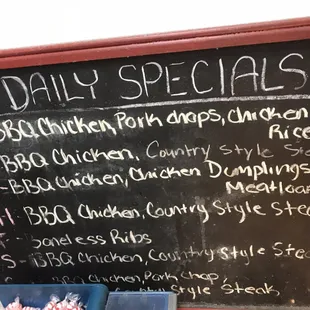 DAILY SPECIALS
BBQ Chicken, Pork chops, Chicken
Rice
BBQ Chicken, Country Style
- BBQ Chicken, Chicken Dumplings
Meatloaf
BBQ Chicken, Country Style
Boneless Ribs
S - BBQ Chicken, Country Style
BBQ Chicken, Pork Chop,
Style Steak